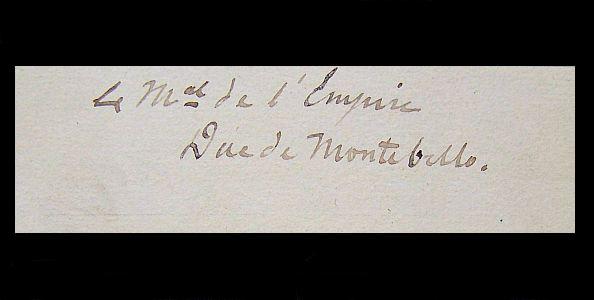 Le Mal de l'Empire
Duc de Montebello.